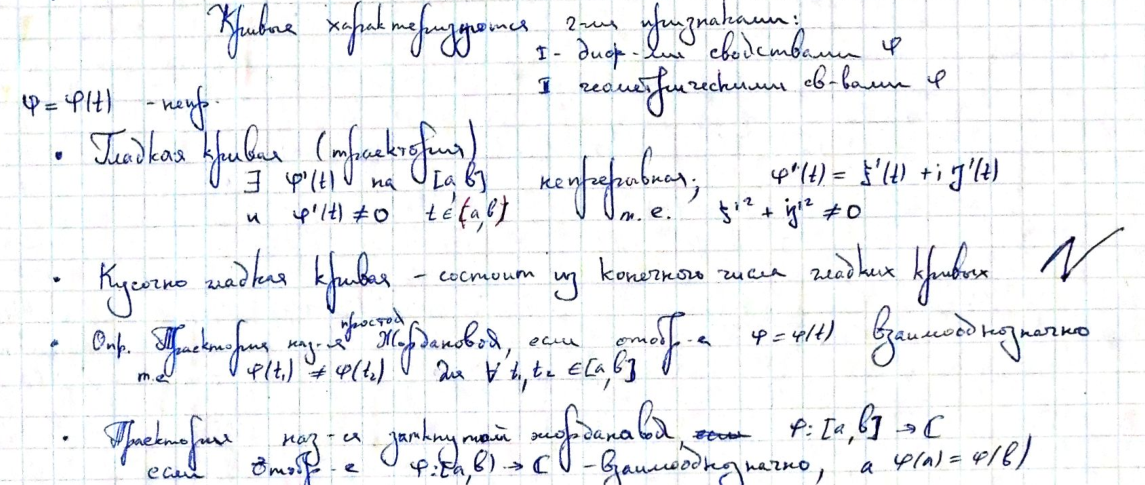 Кривые характеризуются 2-мя признаками:
I - диф-ми свойствами φ
II геометрическими св-вами φ
φ = φ(t) - непр.
• Гладкая кривая (траектория)
∃ φ'(t) на [a,b] непрерывная; φ'(t) = ξ'(t) + i η'(t)
и φ'(t) ≠ 0 t ∈ [a,b] т.е. ξ'² + η'² ≠ 0
• Кусочно гладкая кривая - состоит из конечного числа гладких кривых
простой
• Опр. Траектория наз-ся Жордановой, если отобр-е φ = φ(t) взаимооднозначно
т.е φ(t₁) ≠ φ(t₂) для ∀ t₁, t₂ ∈ [a,b]
• Траектория наз-ся замкнутой жордановой, φ: [a,b] → C
если отобр-е φ: [a,b) → C - взаимооднозначно, а φ(a) = φ(b)